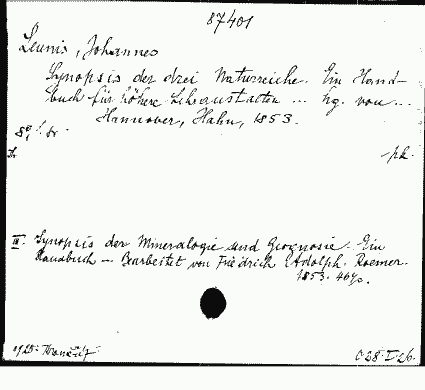 87401
Leunis, Johannes
Synopsis der drei Naturreiche. Ein Hand-
buch für höhere Lehranstalten ... hg. von ...
Hannover, Hahn, 1853.
8°,
III. Synopsis der Mineralogie und Geognosie. Ein
Handbuch – Bearbeitet von Friedrich Adolph Roemer.
1853. 
1925:
C 28. I 26.